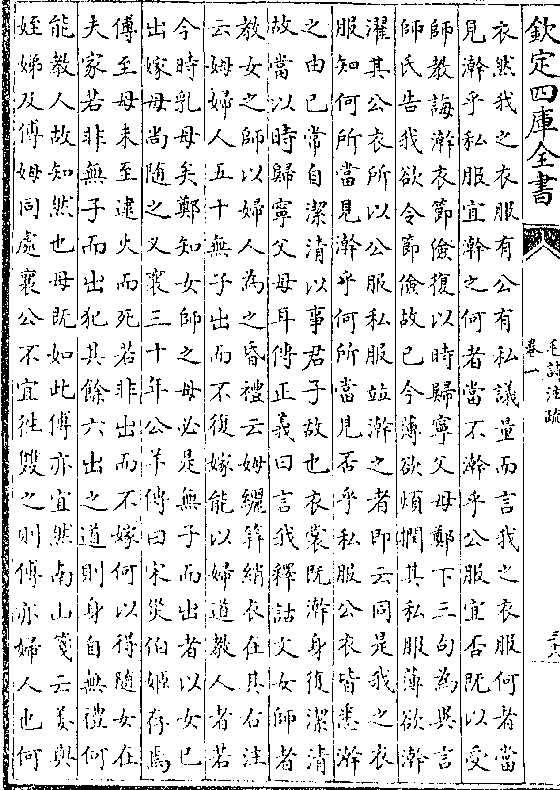 欽定四庫全書
毛詩注疏
卷一
衣然我之衣服有公有私議量而言我之衣服何者當
見澣乎私服宜澣之何者當不澣乎公服宜否旣以受
師教誨澣衣節儉復以時歸寧父母鄭下三句為異言
師氏告我欲令節儉故已今薄欲煩撋其私服薄欲澣
濯其公衣所以公服私服並澣之者即云同是我之衣
服知何所當見澣乎何所當見否乎私服公衣皆悉澣
之由已常自潔清以事君子故也衣裳旣澣身復潔清
故當以時歸寧父母耳傳正義曰言我釋詁文女師者
教女之師以婦人為之昏禮云姆纚笄綃衣在其右注
云姆婦人五十無子出而不復嫁能以婦道教人者若
今時乳母矣鄭知女師之母必是無子而出者以女已
出嫁母尚隨之又襄三十年公羊傳曰宋災伯姬存焉
傅至母未至逮火而死若非出而不嫁何以得隨女在
夫家若非無子而出犯其餘六出之道則身自無禮何
能教人故知然也母旣如此傅亦宜然南山箋云姜與
姪娣及傅姆同處襄公不宜徃雙之則傅亦婦人也何